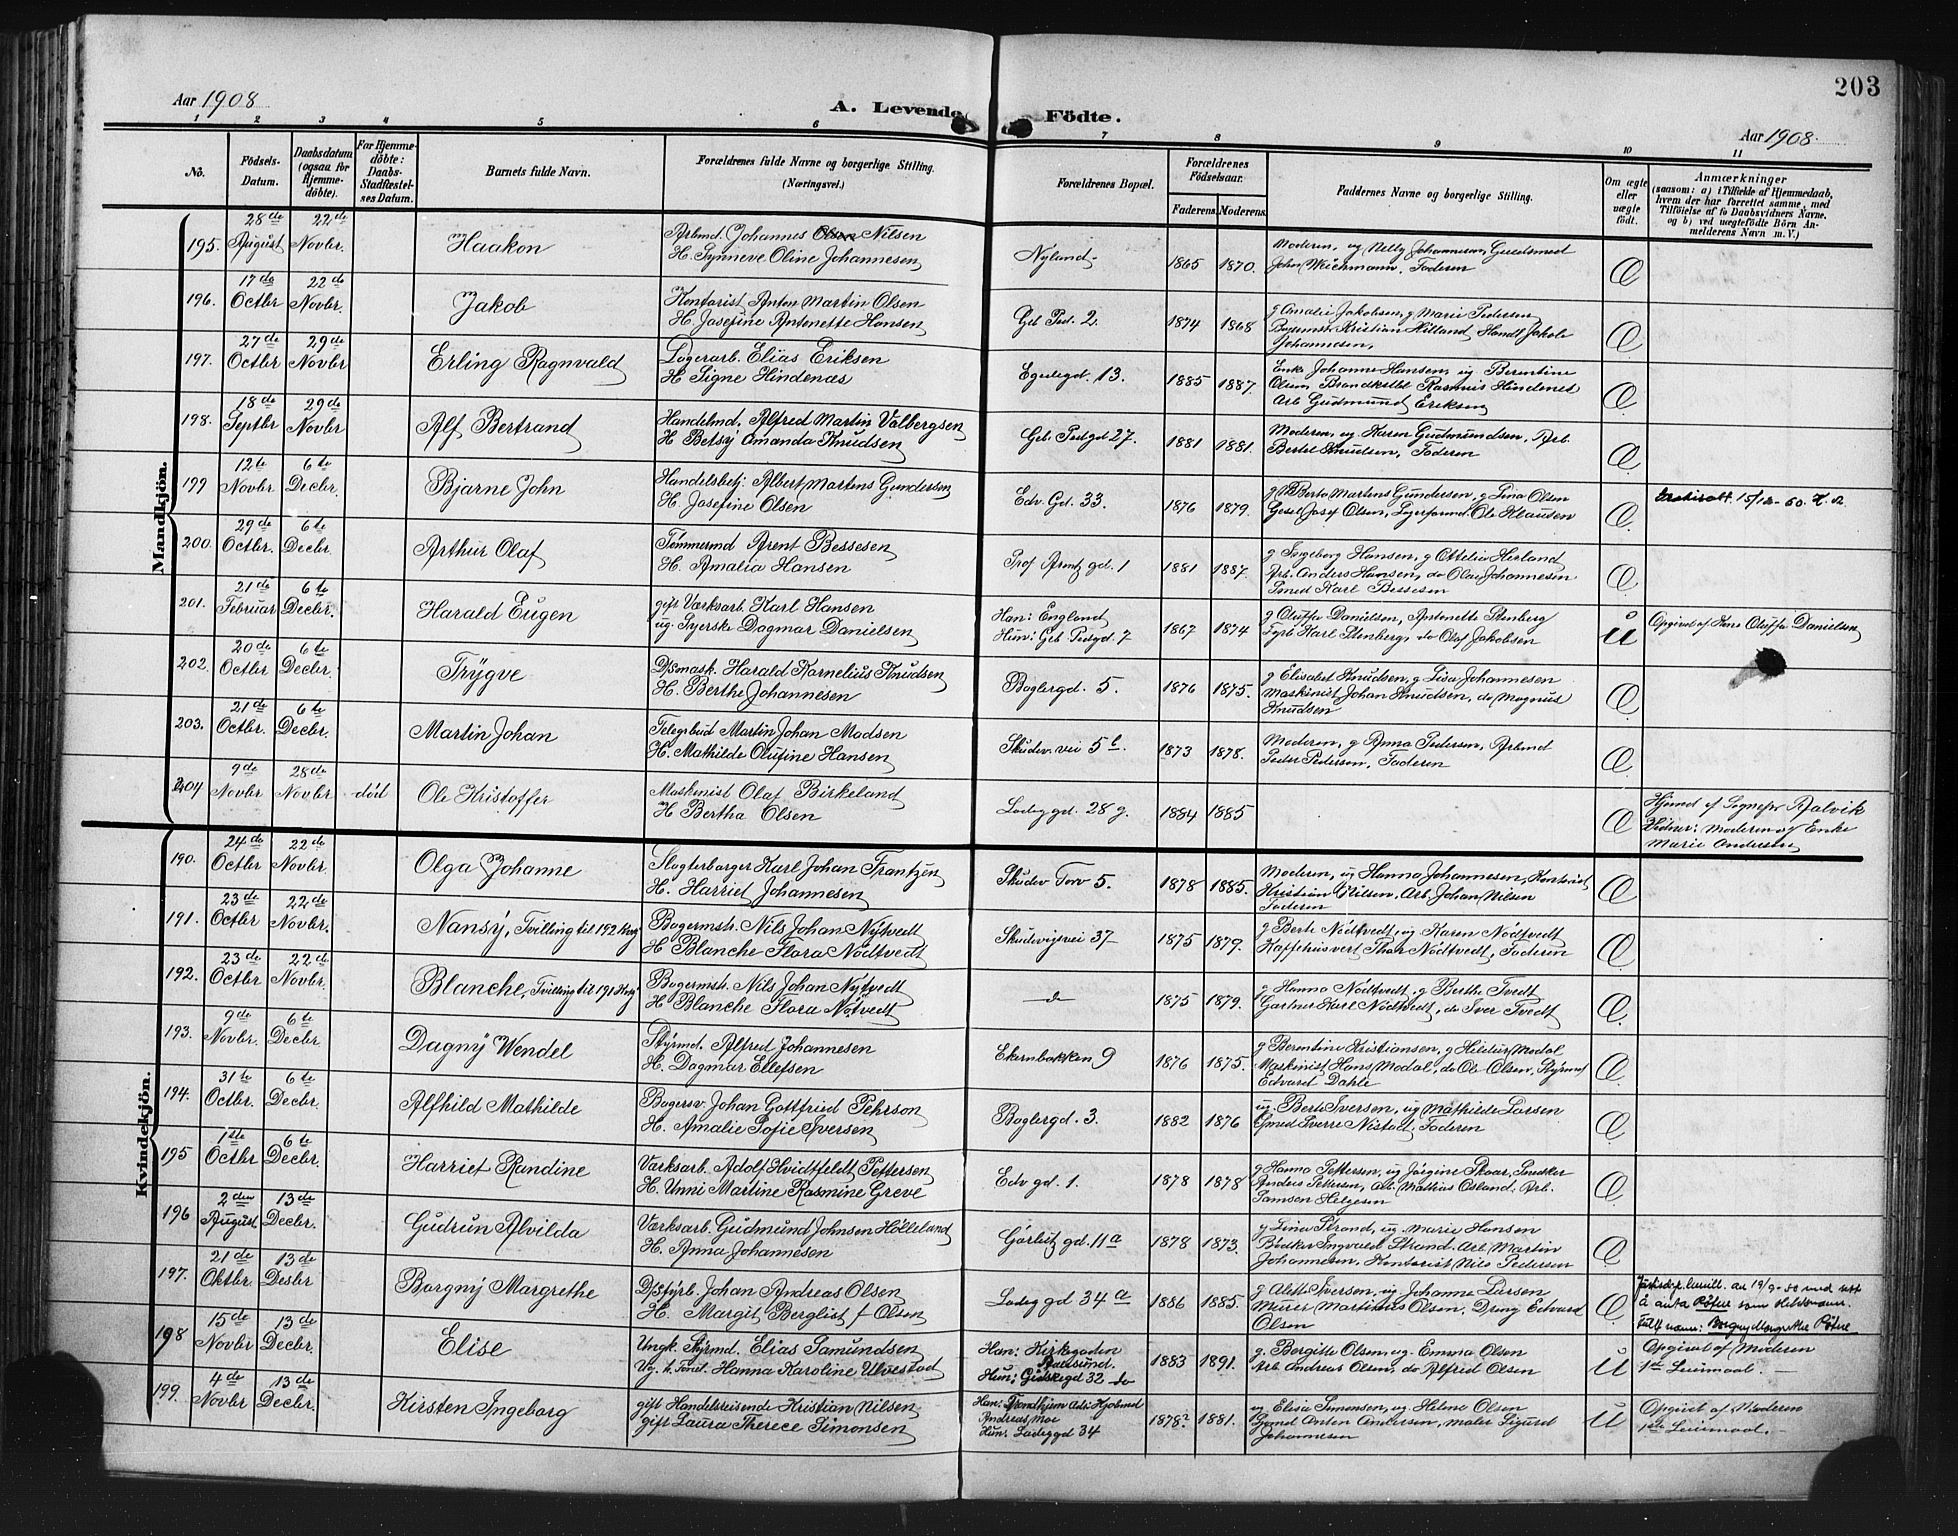 203
Aar 1908
A. Levende Födte.
Aar 1908
1 2 3 4 5 6 7 8 9 10 11
No.
Födsels-Datum.
Daabsdatum (ogsaa for Hjemmedöbte).
For Hjemmedöbte: Daabs-Stadfæstelses Datum.
Barnets fulde Navn.
Forældrenes fulde Navne og borgerlige Stilling. (Næringsvei.)
Forældrenes Bopæl.
Forældrenes Födselsaar.
Faderens. Moderens.
Faddernes Navne og borgerlige Stilling.
Om ægte eller uægte födt.
Anmærkninger
(saasom: a) i Tilfælde af Hjemmedaab, hvem der har forrettet samme, med Tilföielse af to Daabsvidners Navne, og b) ved uægtefödte Börn Anmelderens Navn m. V.)
Mandkjön.
195. 28de August 22de Novbr. Haakon Arbmd. Johannes Nilsen
H. Synneve Oline Johannesen Nyland 1865 1870. Moderen, ug Nelly Johannesen, Guldsmed
John Wichmann, Faderen Æ
196. 17de Octbr 22de Novbr. Jakob Kontorist Anton Martin Olsen
H. Josefine Antonette Hansen Geb Ped. 2. 1874 1868 g Amalie Jakobsen, g Marie Pedersen
Kristian Hilland, Handl Jakob
Johannesen, Æ
197. 27de Octbr 29de Novbr Erling Ragnvald Lagerarb. Elias Eriksen
H Signe Hindenæs Egelegd. 13. 1885 1887. Enke Johanne Hansen, ug Berentine
Olsen, Brandkstbl Rasmus Hindenes
Arb Gudmund Eriksen Æ
198. 18de Septbr 29de Novbr Alf Bertrand Handelmd. Alfred Martin Valbergsen
H Betsy Amanda Knudsen Geb Pedgd 27. 1881 1881. Moderen, ug Karen Gudmundsen, Arb.
Bertel Knudsen, Faderen Æ
199 12te Novbr 6te Decbr. Bjarne John Handelsbetj. Albert Martens Gundersen
H. Josefine Olsen Edv. Gd. 33. 1876 1879. g Berta Martens Gundersen, g Lina Olsen
Gesel Josef Olsen, Lagerformd. Ole Klausen Æ 15/12-60.
200. 29de Octbr. 6te Decbr. Arthur Olaf Tømmermd Arent Bessesen
H. Amalia Hansen Prof Arentz gd. 1 1881 1887. g Ingeborg Hansen, g Ottelia Herland
Arb. Anders Hansen, do Olav Johannesen
Smed Karl Bessesen Æ
201. 21de Februar 6te Decbr. Harald Eugen gift Værksarb. Karl Hansen
ug. Syerske Dagmar Danielsen Han: England
Hun: Geb Pedgd. 7 1867 1874 g Oluffa Danielsen, Antonette Stenberg
Fyrb Karl Stenberg, do Olaf Jakobsen U Opgivet af Oluffa Danielsen
202. 20de Octbr 6te Decbr. Trygve Dsmask. Harald Kornelius Knudsen
H. Berthe Johannesen Baglergd. 5. 1876 1875. g Elisabet Knudsen, g Lisa Johannesen
Maskinist Johan Knudsen, do Magnus
Knudsen Æ
203. 21de Octbr. 6te Decbr. Martin Johan Telegrbud Martin Johan Madsen
H. Mathilde Olufine Hansen Skudev. vei 5 b. 1873 1878. Moderen, g Anna Pedersen, Arbmd
Peder Pedersen, Faderen Æ
204 9de Novbr 28de Novbr død Ole Kristoffer Maskinist Olaf Birkeland
H Bertha Olsen Ladeg gd. 28 g. 1884 1885 Æ Hjemd af Sognepr Aalvik
Vidner: Moderen og Enke
Marie Andersen
Kvindekjön.
190. 24de Octbr 22de Novbr. Olga Johanne Slagterborger Karl Johan Frantzen
H. Harriet Johannesen Skudev Torv 5. 1878 1885. Moderen, ug Hanna Johannesen, Kontorist
Kristian Nilsen, Arb. Johan Nilsen
Faderen Æ
191. 23de Octbr 22de Novbr. Nansy, Tvilling til 192 Kvg Bagermstr. Nils Johan Nytvedt
H Blanche Flora Nødtvedt Skudevigsvei 37 1875 1879. g Berte Nødtvedt, ug Karen Nødtvedt
Kaffehusvert Thor Nødtvedt, Faderen Æ
192. 23de Octbr 22de Novbr. Blanche, Tvilling til 191 Bagermstr. Nils Johan Nytvedt
H Blanche Flora Nøtvedt do 1875 1879. g Hanna Nødtvedt, g Berthe Tvedt
Gartner Karl Nødtvedt, do Iver Tvedt Æ
193. 9de Novbr. 6te Decbr. Dagny Wendel Styrmd. Alfred Johannesen
H. Dagmar Ellefsen Ekernbakken 9 1876 1875. g Berentine Kristiansen, g Hildur Modal
Maskinist Hans Modal, do Ole Olsen, Styrmd
Edvard Dahle Æ
194. 31te Octbr. 6te Decbr. Alfhild Mathilde Bagersv Johan Gottfried Pehrson
H. Amalie Sofie Iversen Baglergd. 3. 1882 1876 ug. Berte Iversen, ug Mathilde Larsen
Smed Sverre Nistad, Faderen Æ
195 1ste Octbr 6te Decbr. Harriet Randine Værksarb. Adolf Hvidtfeldt Pettersen
H. Unni Martine Rasmine Greve Edv gd. 1. 1878 1878 g Hanna Pettersen, ug Jørgine Skaar, Snedker
Anders Pettersen, Arb. Mathias Osland, Arb.
Samson Helgesen Æ
196 2den August 13de Decbr. Gudrun Alvilda Værksarb. Gudmund Johnsen Hølleland
H. Anna Johannesen Gørbitz gd. 11 a 1878 1873. g Lina Strand, ug. Marie Hansen
Bødker Ingvald Strand. Arb Martin
Johannesen, Kontorist Nils Pedersen Æ
197. 21de Oktbr. 13de Desbr Borgny Margrethe Dsstyrb. Johan Andreas Olsen
H. Margit Berglist f Olsen Ladeg gd 34 a 1886 1885. g Alette Iversen, ug Johanne Larsen
Murer Martinius Olsen, Dreng Edvard
Olsen Æ Justisdep. bevill. av 19/9-50 med rett
å anta Røtne som slektsnavn.
fullt navn: Borgny Margrethe Røtne
198 15de Novbr 13de Decbr. Elise Ungk. Styrmd. Elias Samundsen
Ug. h. Forret. Hanna Karoline Ulvestad Han: Kirkegaden
Aalesund.
Hun: Gidskegd 32 do 1883 1891. g. Bergitte Olsen, ug. Emma Olsen
Arb. Andreas Olsen, do Alfred Olsen U Opgivet af Moderen
1ste Leiermaal.
199. 4de Novbr 13de Decbr. Kirsten Ingeborg gift Handelsreisende Kristian Nilsen
gift Laura Therece Simonsen Han: Trondhjem Adr: Hjalmd
Andreas Moe
Hun: Ladeggd 34 1878? 1881. ug Elisa Simonsen, ug. Helene Olsen
Smed Anton Andersen, maler Sigurd
Johannesen U Opgivet af Moderen
1ste Leiermaal.